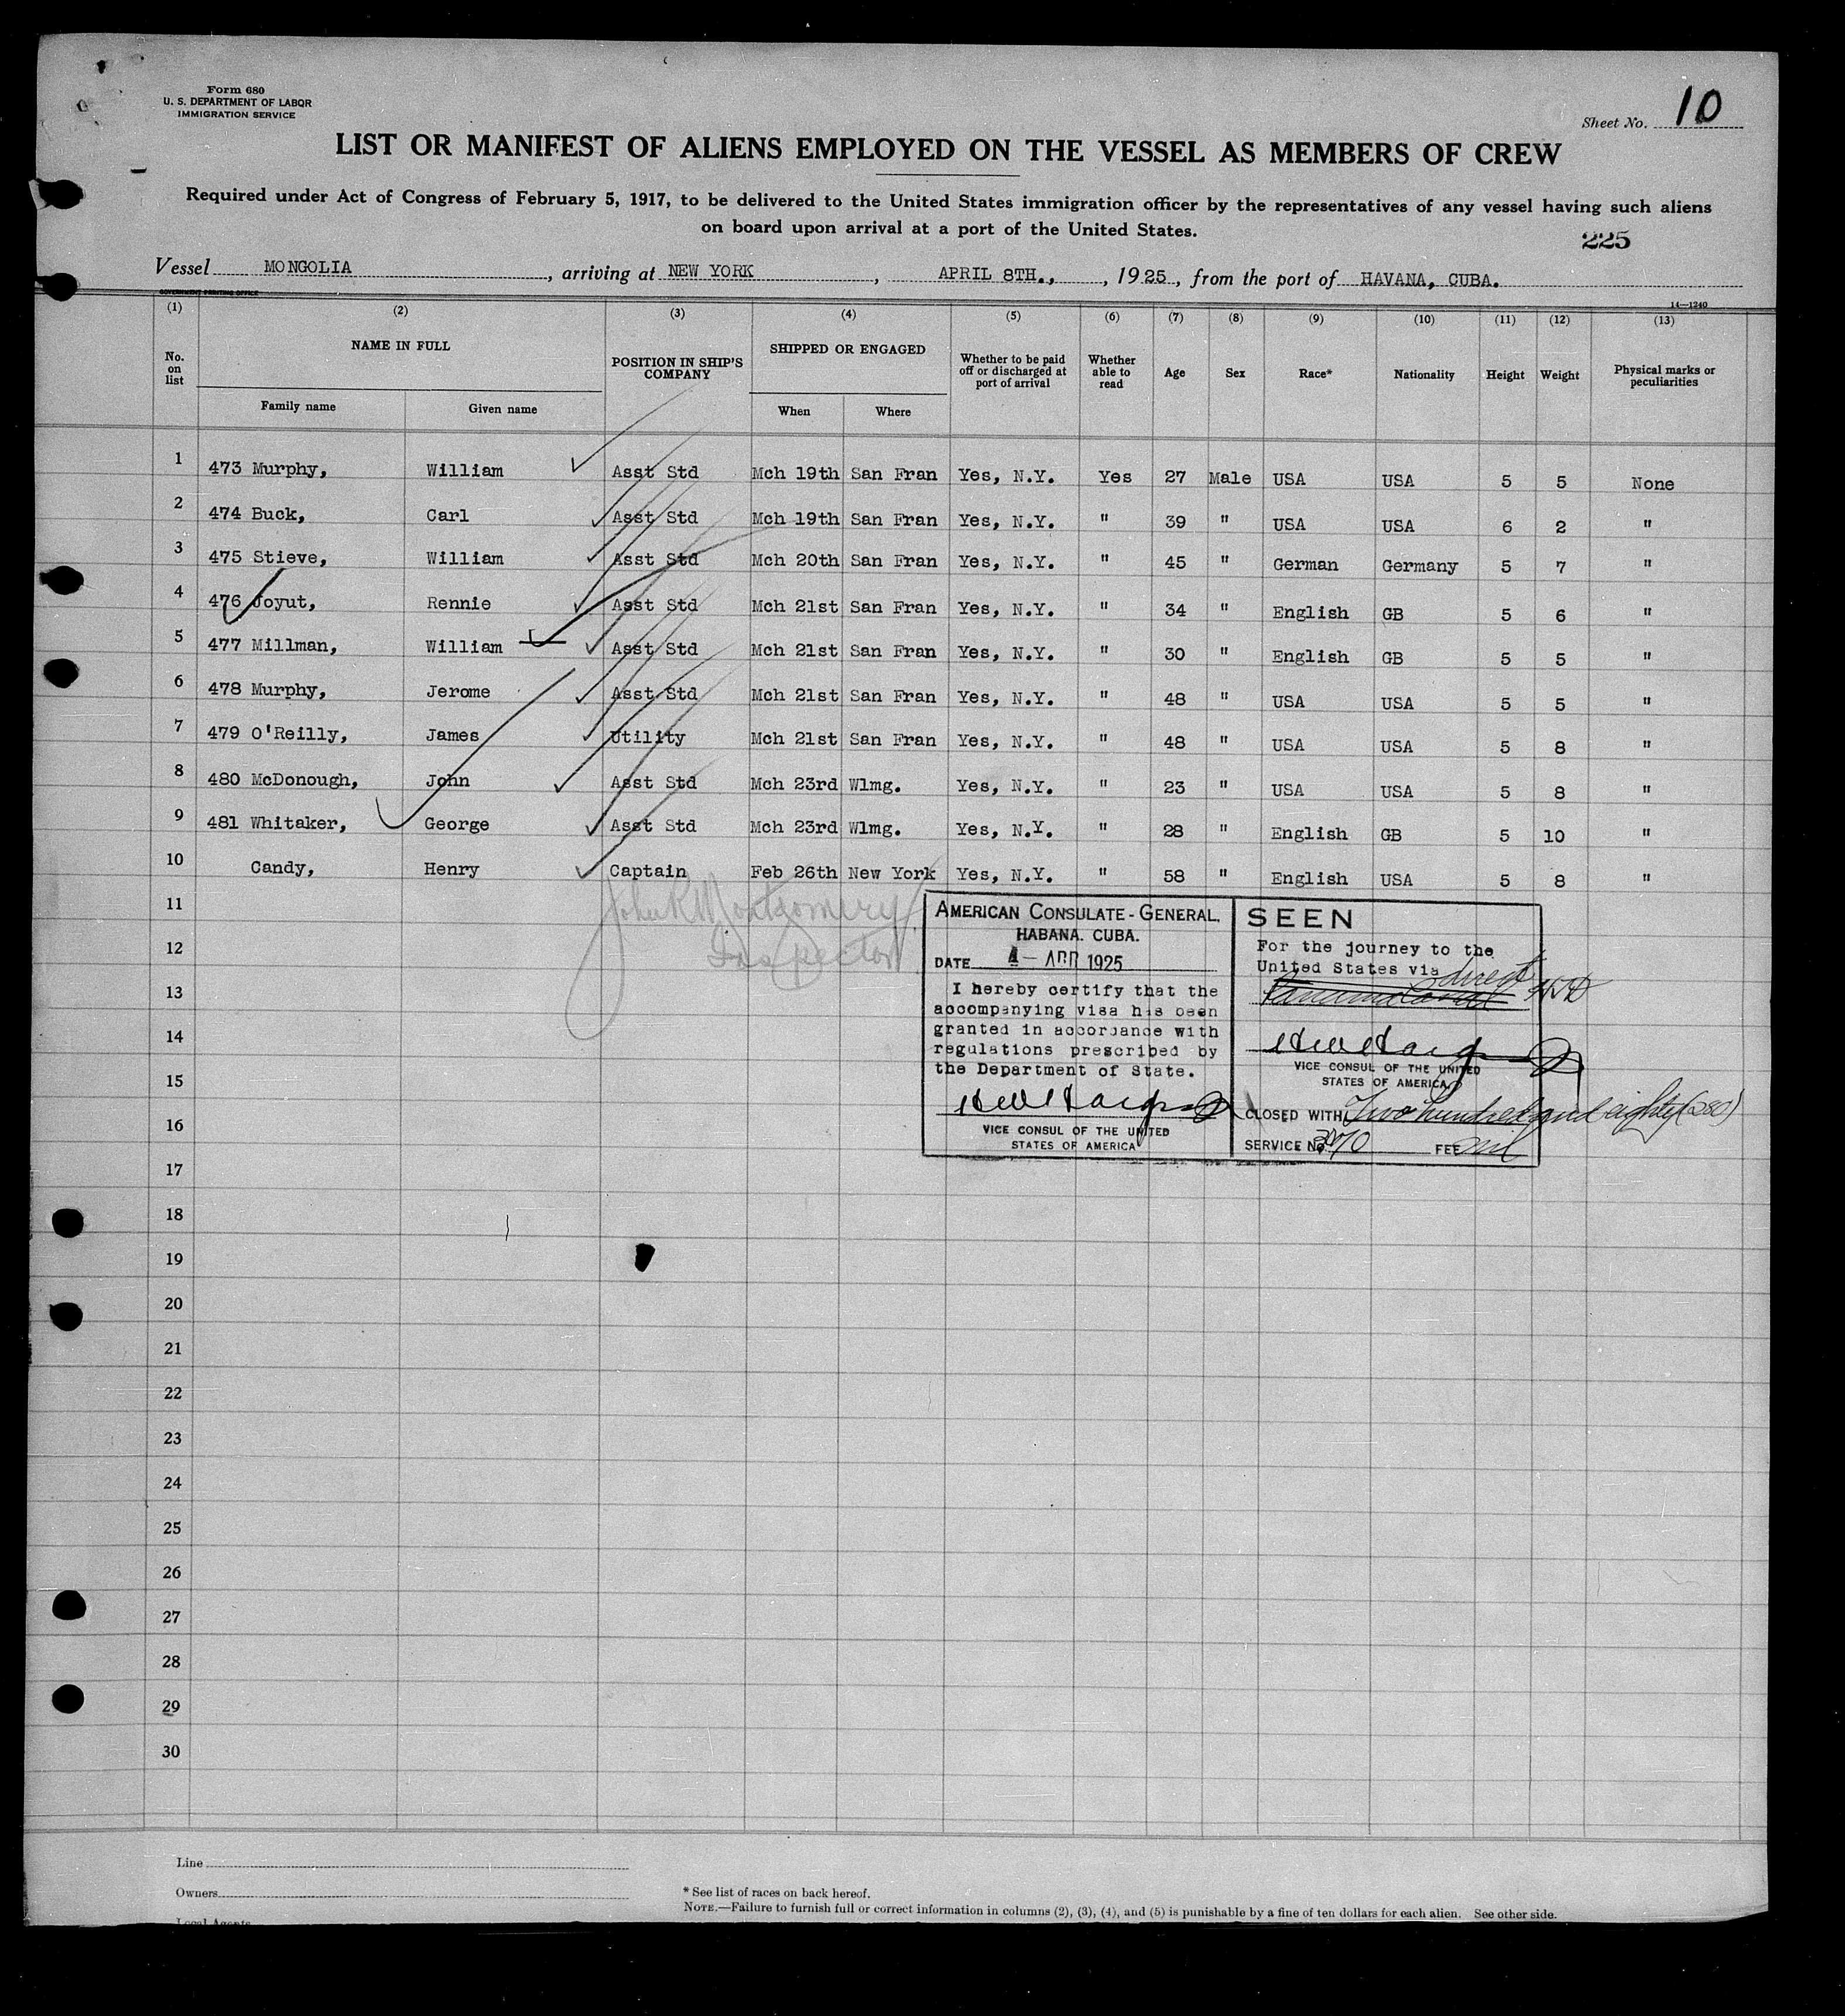 Form 680
U. S. DEPARTMENT OF LABOR
IMMIGRATION SERVICE
Sheet No. 10
LIST OR MANIFEST OF ALIENS EMPLOYED ON THE VESSEL AS MEMBERS OF CREW
Required under Act of Congress of February 5, 1917, to be delivered to the United States immigration officer by the representatives of any vessel having such aliens
on board upon arrival at a port of the United States.
225
Vessel MONGOLIA, arriving at NEW YORK, APRIL 8TH., , 1925, from the port of HAVANA, CUBA.
GOVERNMENT PRINTING OFFICE
14—1240
(1) (2) (3) (4) (5) (6) (7) (8) (9) (10) (11) (12) (13)
No. on list NAME IN FULL POSITION IN SHIP'S COMPANY SHIPPED OR ENGAGED Whether to be paid off or discharged at port of arrival Whether able to read Age Sex Race* Nationality Height Weight Physical marks or peculiarities
Family name Given name When Where
1 473 Murphy, William Asst Std Mch 19th San Fran Yes, N.Y. Yes 27 Male USA USA 5 5 None
2 474 Buck, Carl Asst Std Mch 19th San Fran Yes, N.Y. " 39 " USA USA 6 2 "
3 475 Stieve, William Asst Std Mch 20th San Fran Yes, N.Y. " 45 " German Germany 5 7 "
4 476 Joyut, Rennie Asst Std Mch 21st San Fran Yes, N.Y. " 34 " English GB 5 6 "
5 477 Millman, William Asst Std Mch 21st San Fran Yes, N.Y. " 30 " English GB 5 5 "
6 478 Murphy, Jerome Asst Std Mch 21st San Fran Yes, N.Y. " 48 " USA USA 5 5 "
7 479 O'Reilly, James Utility Mch 21st San Fran Yes, N.Y. " 48 " USA USA 5 8 "
8 480 McDonough, John Asst Std Mch 23rd Wlmg. Yes, N.Y. " 23 " USA USA 5 8 "
9 481 Whitaker, George Asst Std Mch 23rd Wlmg. Yes, N.Y. " 28 " English GB 5 10 "
10 Candy, Henry Captain Feb 26th New York Yes, N.Y. " 58 " English USA 5 8 "
John R Montgomery
Inspector
AMERICAN CONSULATE-GENERAL,
HABANA. CUBA.
DATE 4- APR 1925
I hereby certify that the
accompanying visa has been
granted in accordance with
regulations prescribed by
the Department of State.
VICE CONSUL OF THE UNITED
STATES OF AMERICA
SEEN
For the journey to the
United States via direct
Panama Canal
VICE CONSUL OF THE UNITED
STATES OF AMERICA
CLOSED WITH Two hundred and eighty (280)
SERVICE No. FEE
11
12
13
14
15
16
17
18
19
20
21
22
23
24
25
26
27
28
29
30
Line
Owners
Local Agents
* See list of races on back hereof.
NOTE.—Failure to furnish full or correct information in columns (2), (3), (4), and (5) is punishable by a fine of ten dollars for each alien. See other side.